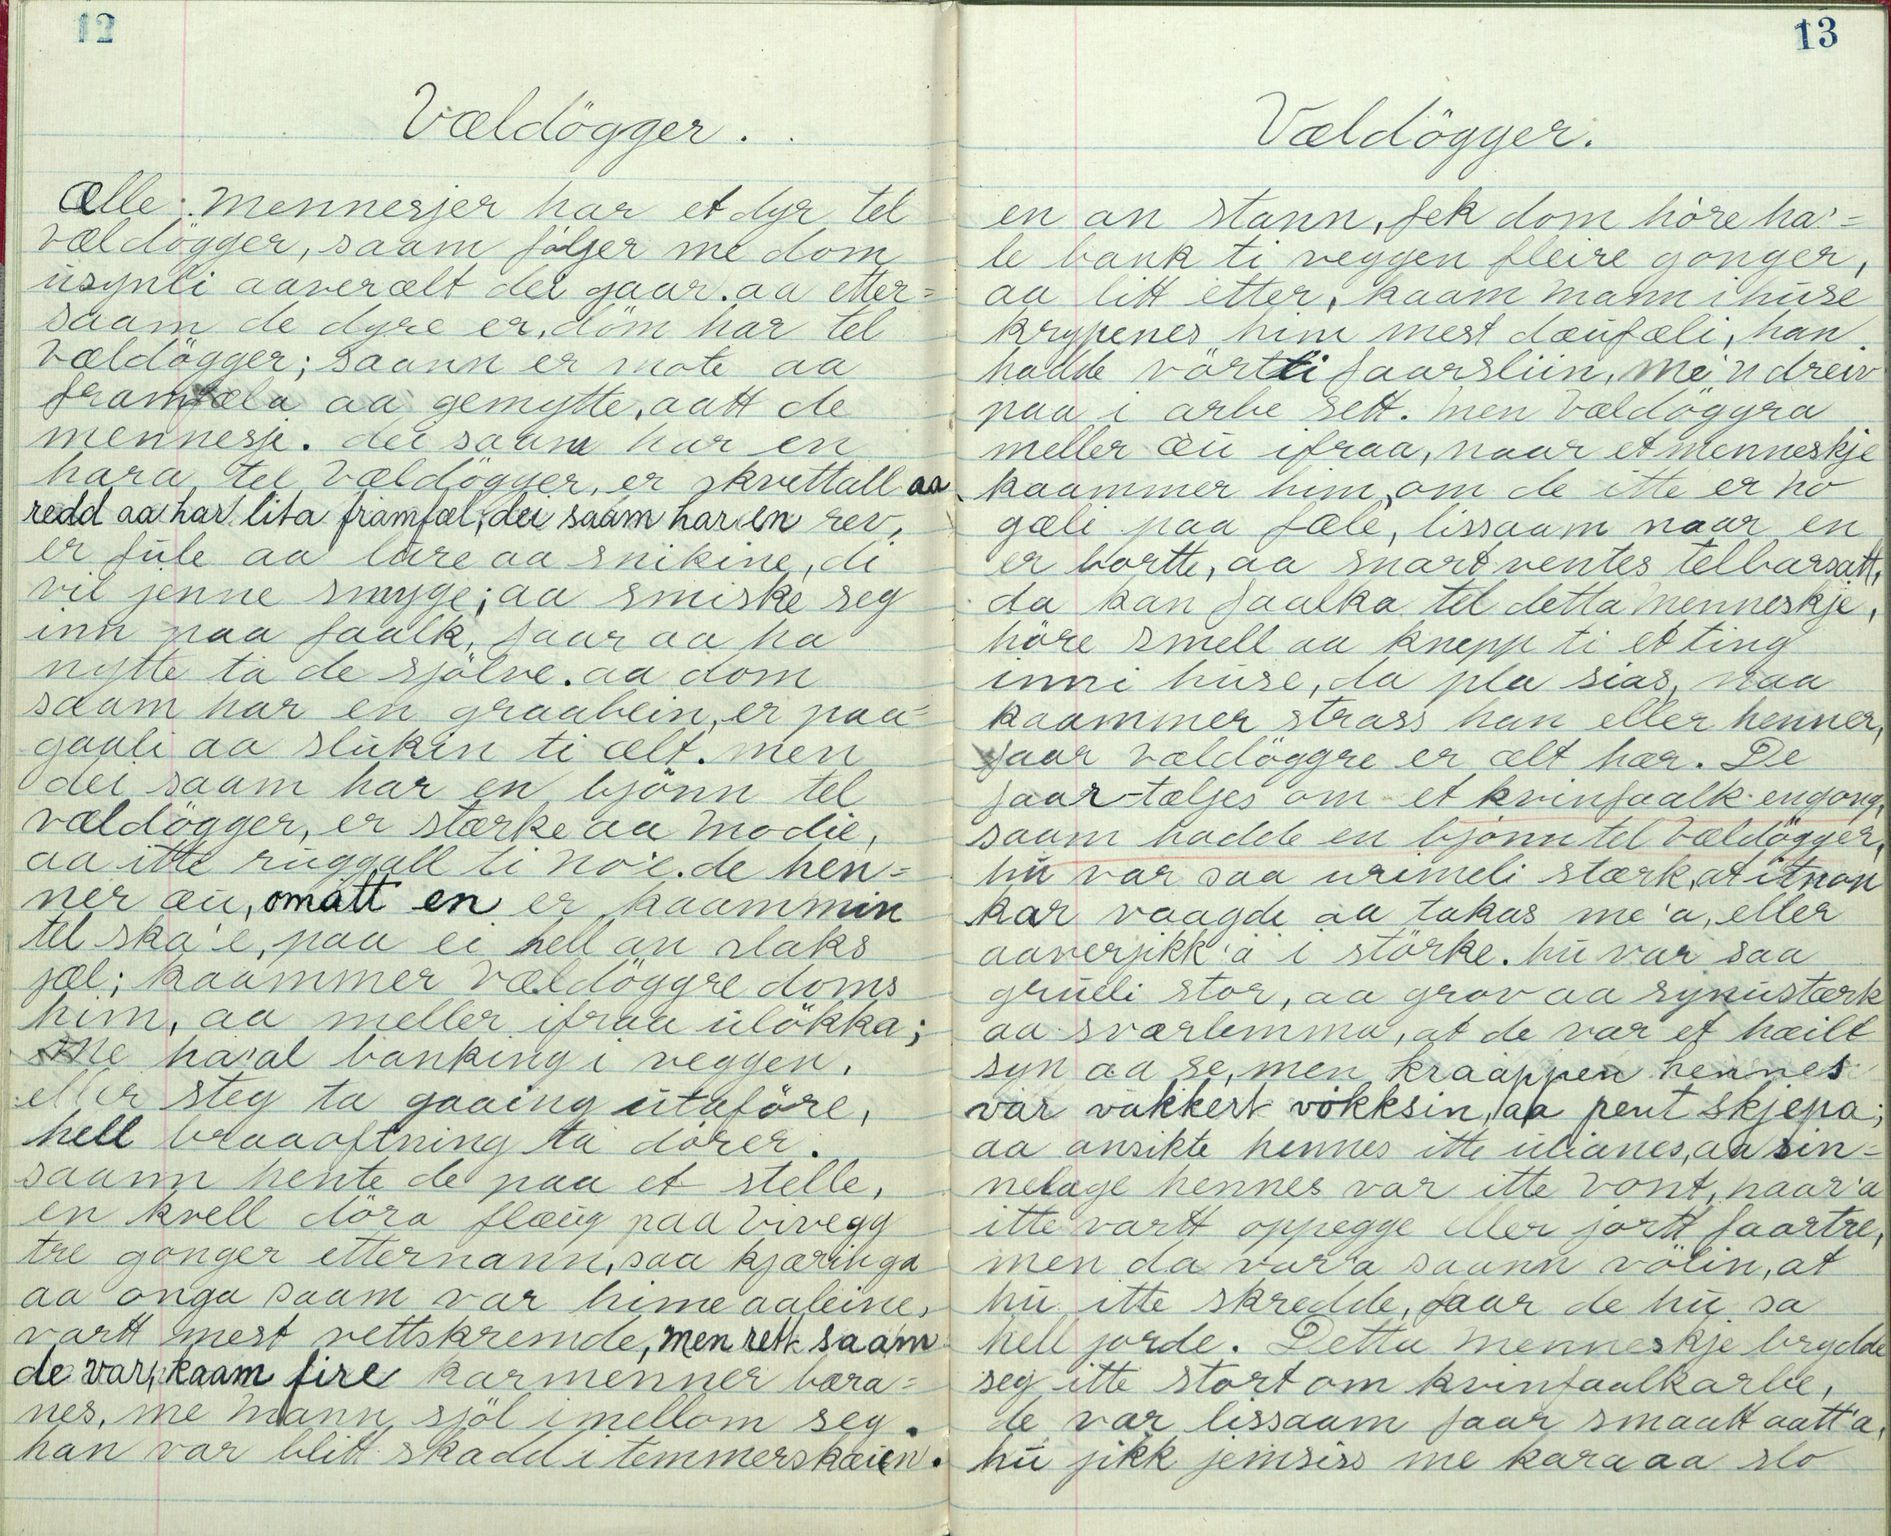 12
Vældögger.
Ælle mennesjer har et dyr tel
vældögger, saam följer me dom
usynli aaverælt dei gaar. aa etter=
saam de dyre er, dom har tel
vældögger; saann er mote aa
framfæla aa gemytte, aatt de
mennesje. dei saam har en
hara tel vældögger, er skvettall aa
redd aa har lita framfæl, dei saam har en rev,
er fule aa lure aa snikine, di
vil jenne smyge; aa smiske seg
inn paa faalk, faar aa ha
nytte ta de sjölve. aa dom
saam har en graabein, er paa=
gaali aa slukin ti ælt. men
dei saam har en bjönn tel
vældögger, er stærke aa modie,
aa itte ruggall ti no'e. de hen=
ner æu, omatt en er kaammin
tel ska'e, paa ei hell an slaks
jæl; kaammer vældöggre doms
him, aa meller ifraa ulökka;
me ha'al banking i veggen,
eller steg ta gaaing utaföre,
hell braaoftning ta dörer.
saann hente de paa et stelle,
en kvell döra flæug paa vivegg
tre gonger etternann, saa kjæringa
aa onga saam var hime aaleine,
vartt mest vettskremde, men rett saam
de var, kaam fire karmenner bæra=
nes, me mann sjöl imellom seg.
han var blitt skadd i temmerskauen.
13
Vældögger.
en an stann, fek dom höre ha'=
le bank ti veggen fleire gonger,
aa litt etter, kaam mann i huse
krypenes him mest daufæli, han
hadde vörtti faarsliin, me'n dreiv
paa i arbe sett. men vældöggra
meller æu ifraa, naar et menneskje
kaammer him, om de itte er no
gæli paa fæle, lissaam naar en
er bortte, aa snart ventes telbarsatt,
da kan faalka tel detta menneskje,
höre smell aa knepp ti et ting
inni huse, da pla sias, naa
kaammer strass han eller henner,
faar vældöggre er ælt hær. De
faar-tæljes om et kvinfaalk engong,
saam hadde en bjönn tel vældögger,
hu var saa urimeli stærk, at itnon
kar vaagde aa takas me'a, eller
aaverjikk'a i störke. hu var saa
gruli stor, aa grov aa synustærk
aa sværlemma, at de var et hæilt
syn aa se, men kraappen hennes
var vakkert vökksin, aa pent skjepa;
aa ansikte hennes itte ulianes, aa sin=
nelage hennes var itte vont, naar'a
itte vartt oppegge eller jortt faartre,
men da var'a saann völin, at
hu itte skredde, faar de hu sa
hell jorde. Detta menneskje brydde
seg itte stort om kvinfaalkarbe,
de var lissaam faar smaatt aatt'a,
hu jikk jemsiss me kara aa slo